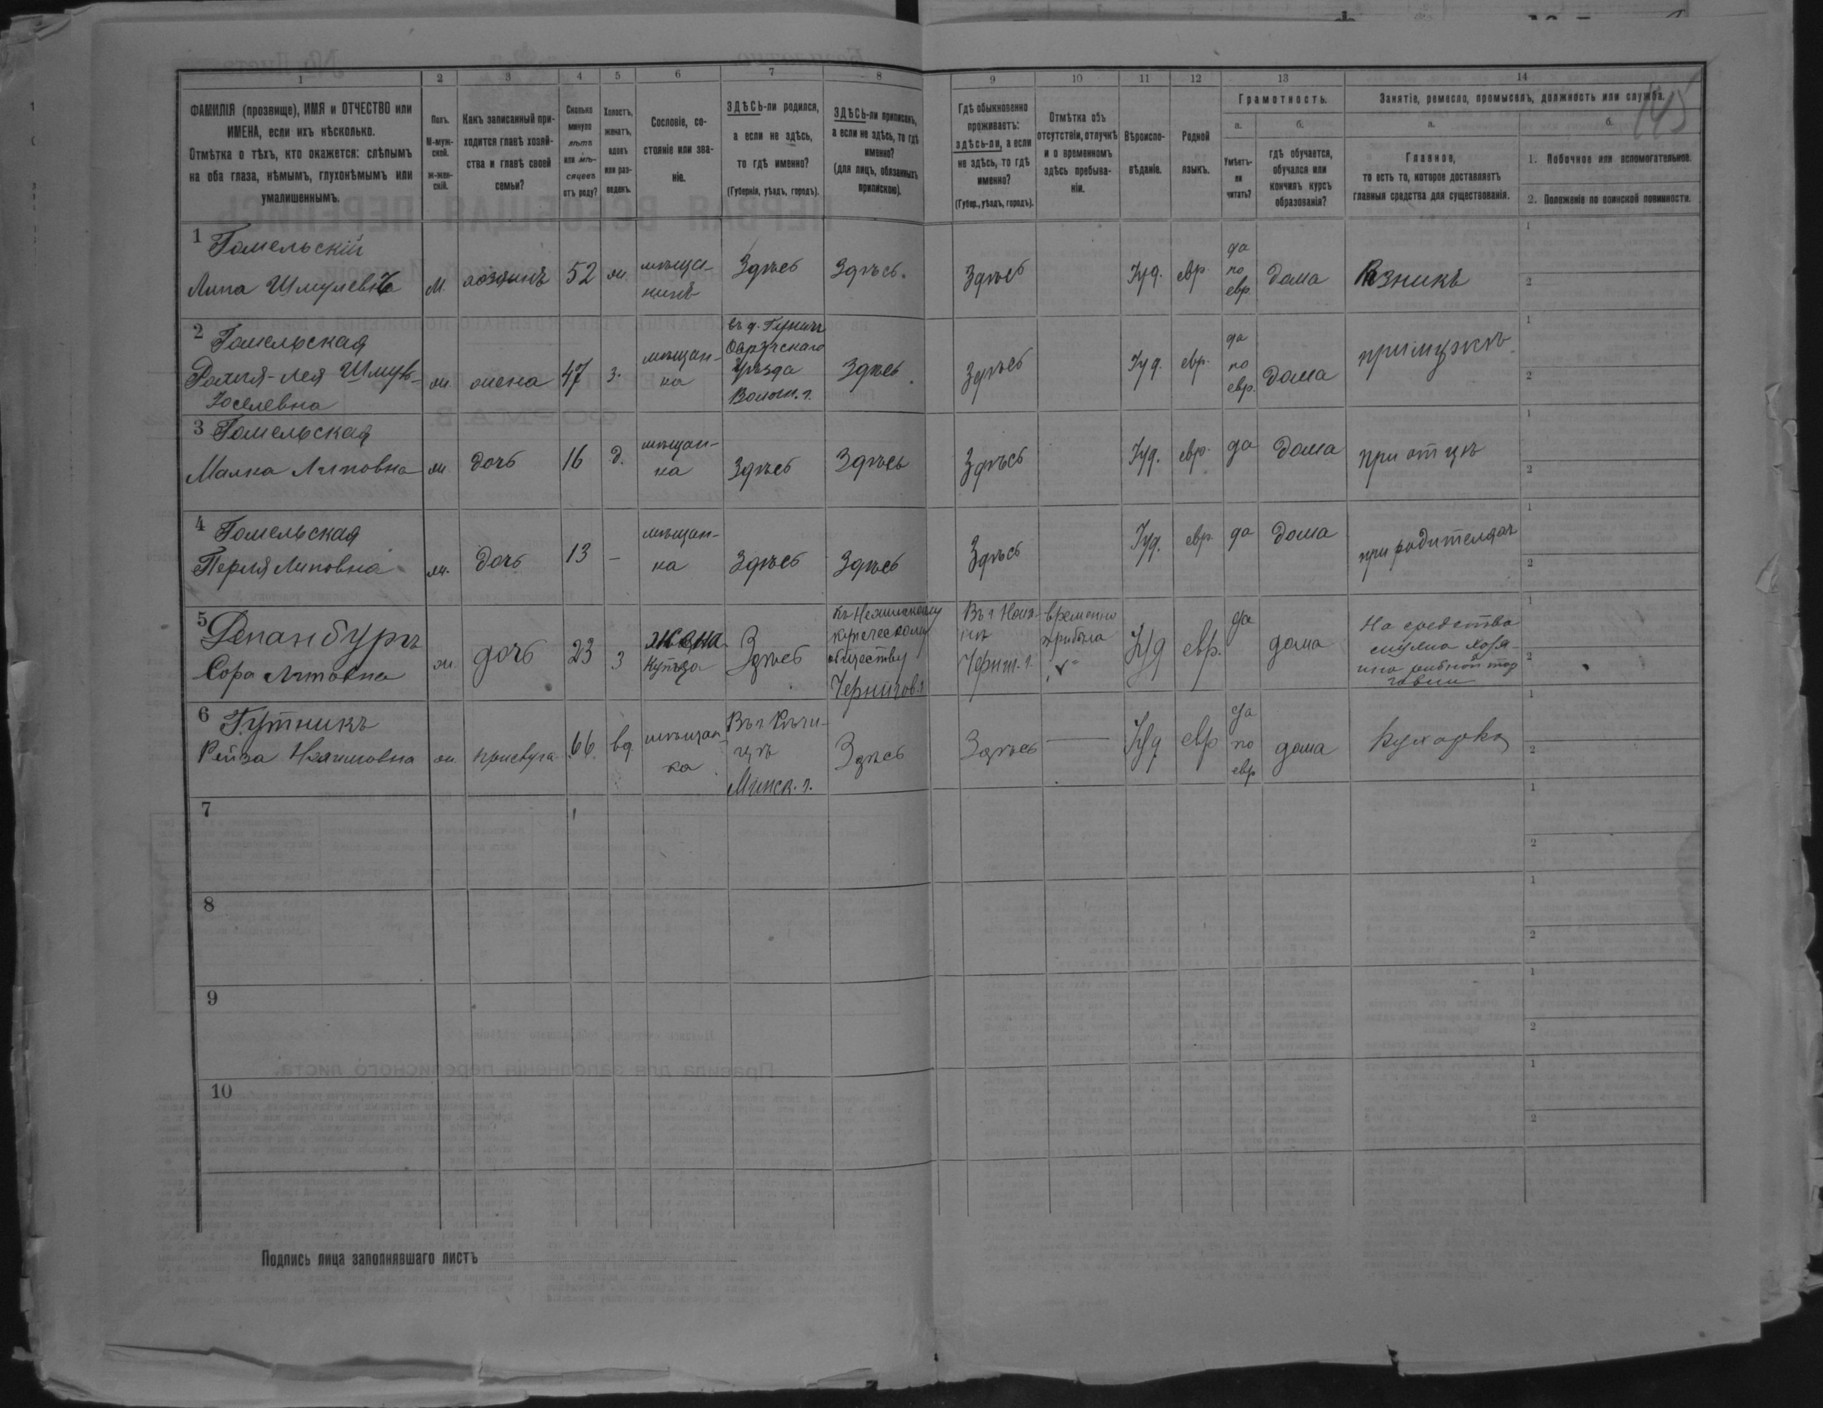 145
1 2 3 4 5 6 7 8 9 10 11 12 13 14
ФАМИЛІЯ (прозвище), ИМЯ и ОТЧЕСТВО или
ИМЕНА, если ихъ нѣсколько.
Отмѣтка о тѣхъ, кто окажется: слѣпымъ
на оба глаза, нѣмымъ, глухонѣмымъ или
умалишеннымъ.
Полъ.
М-муж-
ской.
ж-жен-
скій.
Какъ записанный при-
ходится главѣ хозяй-
ства и главѣ своей
семьи?
Сколько
минуло
лѣтъ
или мѣ-
сяцевъ
отъ роду?
Холостъ,
женатъ,
вдовъ
или раз-
веденъ.
Сословіе, со-
стояніе или зва-
ніе.
ЗДѢСЬ-ли родился,
а если не здѣсь,
то гдѣ именно?
(Губернія, уѣздъ, городъ).
ЗДѢСЬ-ли приписанъ,
а если не здѣсь, то гдѣ
именно?
(для лицъ, обязанныхъ
припискою).
Гдѣ обыкновенно
проживаетъ:
здѣсь-ли, а если
не здѣсь, то гдѣ
именно?
(Губер., уѣздъ, городъ).
Отмѣтка объ
отсутствіи, отлучкѣ
и о временномъ
здѣсь пребыва-
ніи.
Вѣроиспо-
вѣданіе.
Родной
языкъ.
Грамотность.
а.
Умѣетъ-
ли
читать?
б.
гдѣ обучается,
обучался или
кончилъ курсъ
образованія?
Занятіе, ремесло, промыселъ, должность или служба.
а.
Главное,
то есть то, которое доставляетъ
главныя средства для существованія.
б.
1. Побочное или вспомогательное.
2. Положеніе по воинской повинности.
1
Гомельскій
Липа Шмулевичъ
М
хозяинъ
52
ж
мѣща-
нинъ
Здѣсь
Здѣсь.
Здѣсь
Іуд.
евр.
да
по
евр.
дома
Рѣзникъ
1
2
2
Гомельская
Лея
Іоселевна
ж
жена
47
з.
мѣщан-
ка
въ д.
Овручскаго
Уѣзда
Волын. г.
Здѣсь.
Здѣсь
Іуд.
евр.
да
по
евр.
дома
при мужѣ
1
2
3
Гомельская
Малка Липовна
ж
дочь
16
д.
мѣщан-
ка
Здѣсь
Здѣсь
Здѣсь
Іуд.
евр.
да
дома
при отцѣ
1
2
4
Гомельская
Перля Липовна
ж.
дочь
13
-
мѣщан-
ка
Здѣсь
Здѣсь
Здѣсь
Іуд.
евр
да
дома
при родителяхъ
1
2
5
Сора Липовна
ж
дочь
23
з
жена
купца
Здѣсь
купеческому
обществу
Чернигов.
Въ г
Черниг. г.
временно
прибыла
Іуд
евр.
да
дома
На средства
мужа хозя-
ина
1
2
6
Гутникъ
Рейза
ж
прислуга
66
вд
мѣщан-
ка
Въ г. Рѣчи-
цѣ
Минск. г.
Здѣсь
Здѣсь
Іуд
евр
да
по
евр
дома
Кухарка
1
2
7
1
2
8
1
2
9
1
2
10
1
2
Подпись лица заполнявшаго листъ